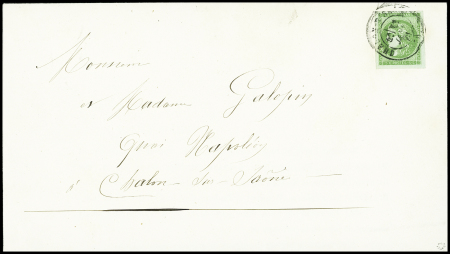 Monsieur
et Madame Galopin
Quai Napoléon
à Chalon-sur-Saône